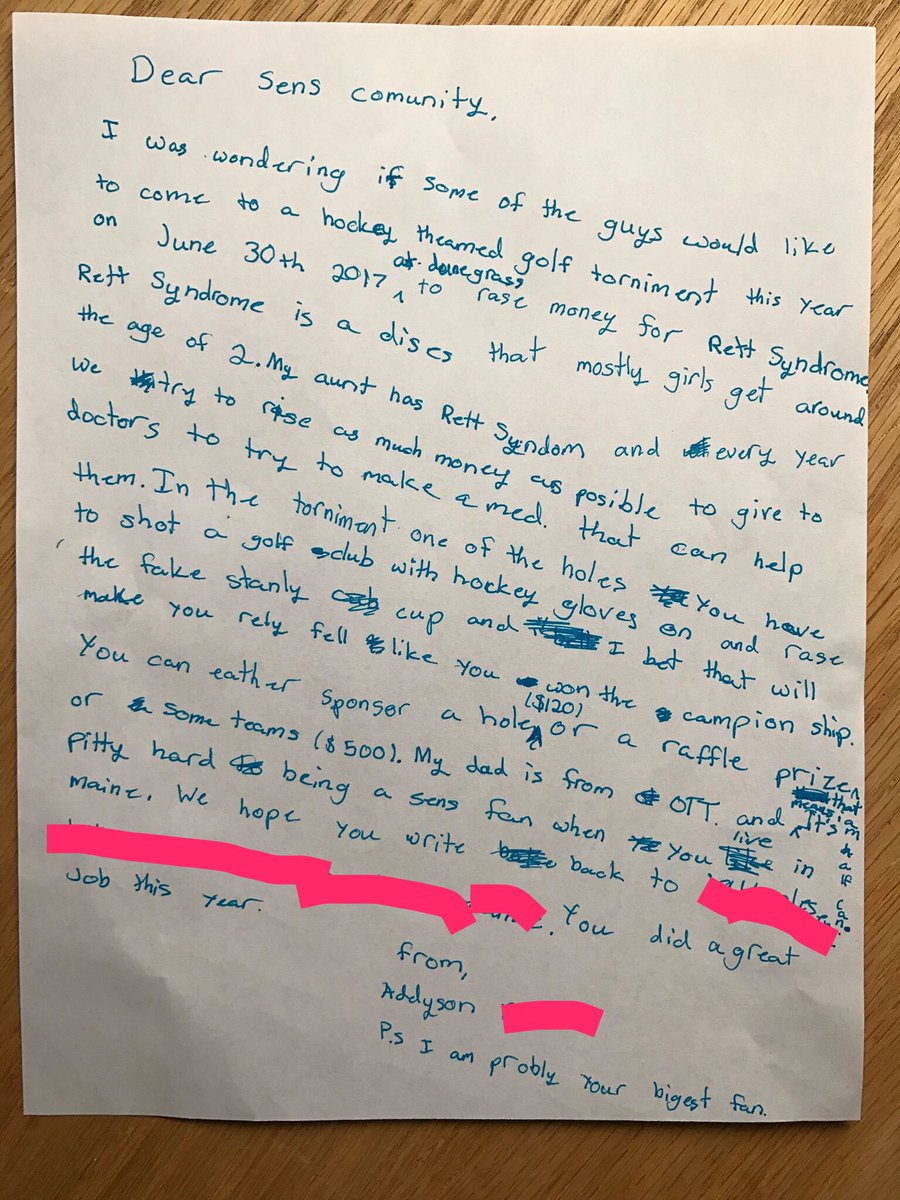 Dear Sens comunity,
I was wondering if some of the guys would like
to come to a hockey theamed golf torniment this year
on June 30th 2017 at dunegrass to rase money for Rett Syndrome
Rett Syndrome is a dises that mostly girls get around
the age of 2. My aunt has Rett Syndom and every year
we try to rise as much money as posible to give to
doctors to try to make a med. that can help
them. In the torniment one of the holes you have
to shot a golf club with hockey gloves on and rase
the fake stanly cup and I bet that will
make you rely fell like you won the campion ship.
You can eather sponsor a hole ($120) or a raffle prize
or some teams ($500). My dad is from OTT. and that means i am half can. It's
pitty hard being a sens fan when you live in
maine. We hope you write back to
You did a great
Job this year.
from,
Addyson
P.s I am probly your bigest fan.